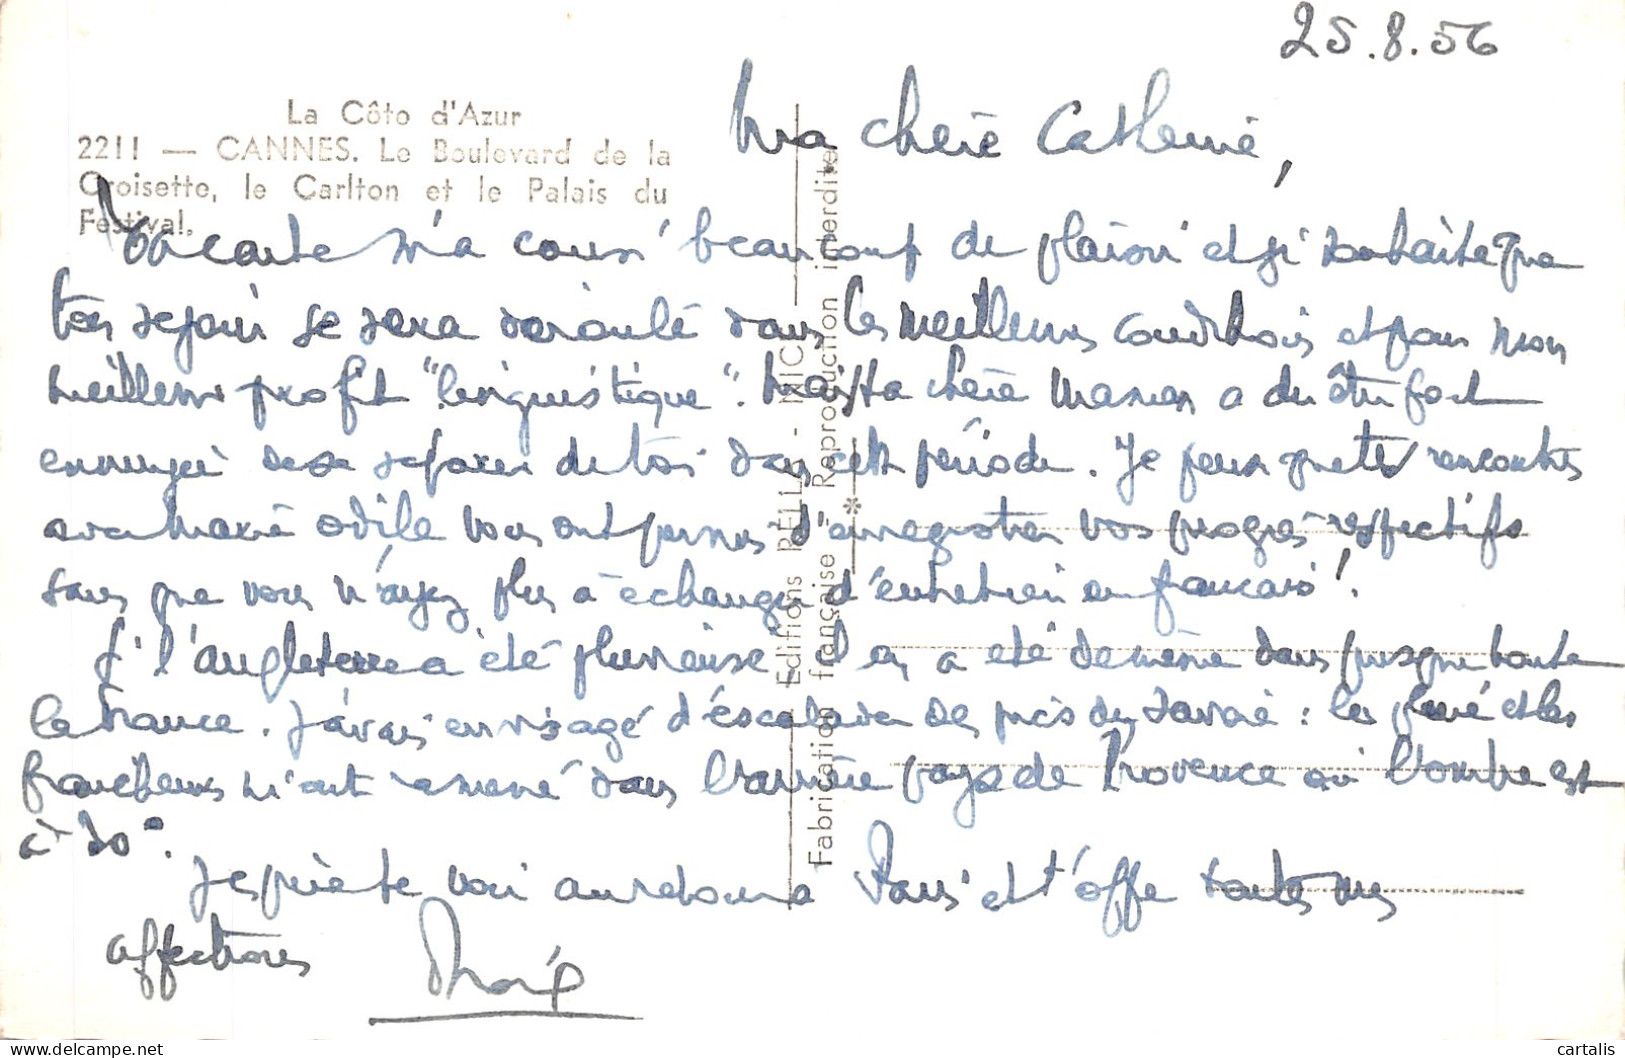 25.8.56
La Côte d'Azur
2211 — CANNES. Le Boulevard de la
Croisette, le Carlton et le Palais du
Festival.
Ma chère Catherine,
Ta carte m'a beaucoup de plaisir et j'ai souhaité que
ton séjour se sera déroulé dans les meilleures conditions et pour mon
meilleur profit "linguistique". Mais ta chère Maman a dû être fort
ennuyée de se séparer de toi dans cette période. Je pense que tes rencontres
avec Marie Odile vous ont permis d'enregistrer vos progrès respectifs
sans que vous n'ayez plus à échanger d'entretien en français!
Si l'angleterre a été pluvieuse il en a été de même dans presque toute
la France. J'avais envisagé d'escalader de près de Savoie : la pluie et les
fraîcheurs m'ont ramené dans l'arrière pays de Provence où l'ombre est
à 30°.
J'espère te voir au retour à Paris et t'offre toutes mes
affections
Editions RELLA - NICE
Fabrication française Reproduction interdite
cartalis